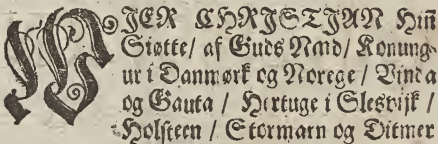 WJER CHRJSTJAN Hiñ
Siøtte/ af Guds Naad/ Konung-
ur i Danmørk og Norege / Vinda
og Gauta / Hertuge i Slesvijk /
Holsteen / Stormarn og Ditmer